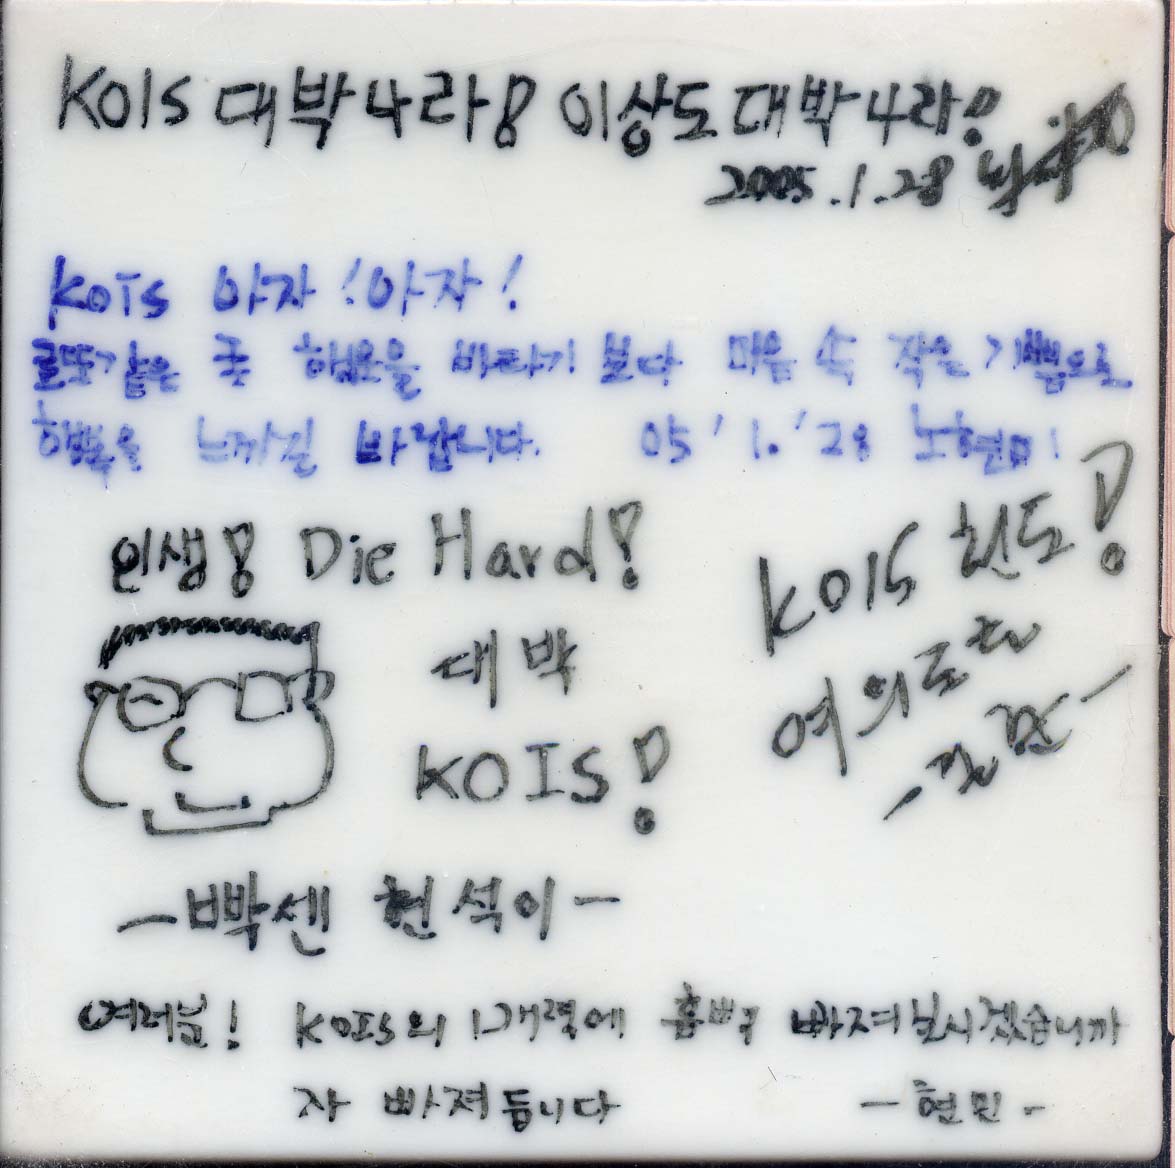 KOIS 대박나라! 이상도 대박나라!
2005.1.28
KOIS 아자!아자!
로또같은 큰 행운을 바라기 보다 마음 속 작은 기쁨으로
행복을 느끼길 바랍니다. 05' 1.'28 노현미!
인생! Die Hard!
대박
KOIS!
KOIS 힌도!
여의도
-빡센 현석이-
여러분! KOIS의 매력에 흠뻑 빠져보시겠습니까
자 빠져듭니다 -현민-